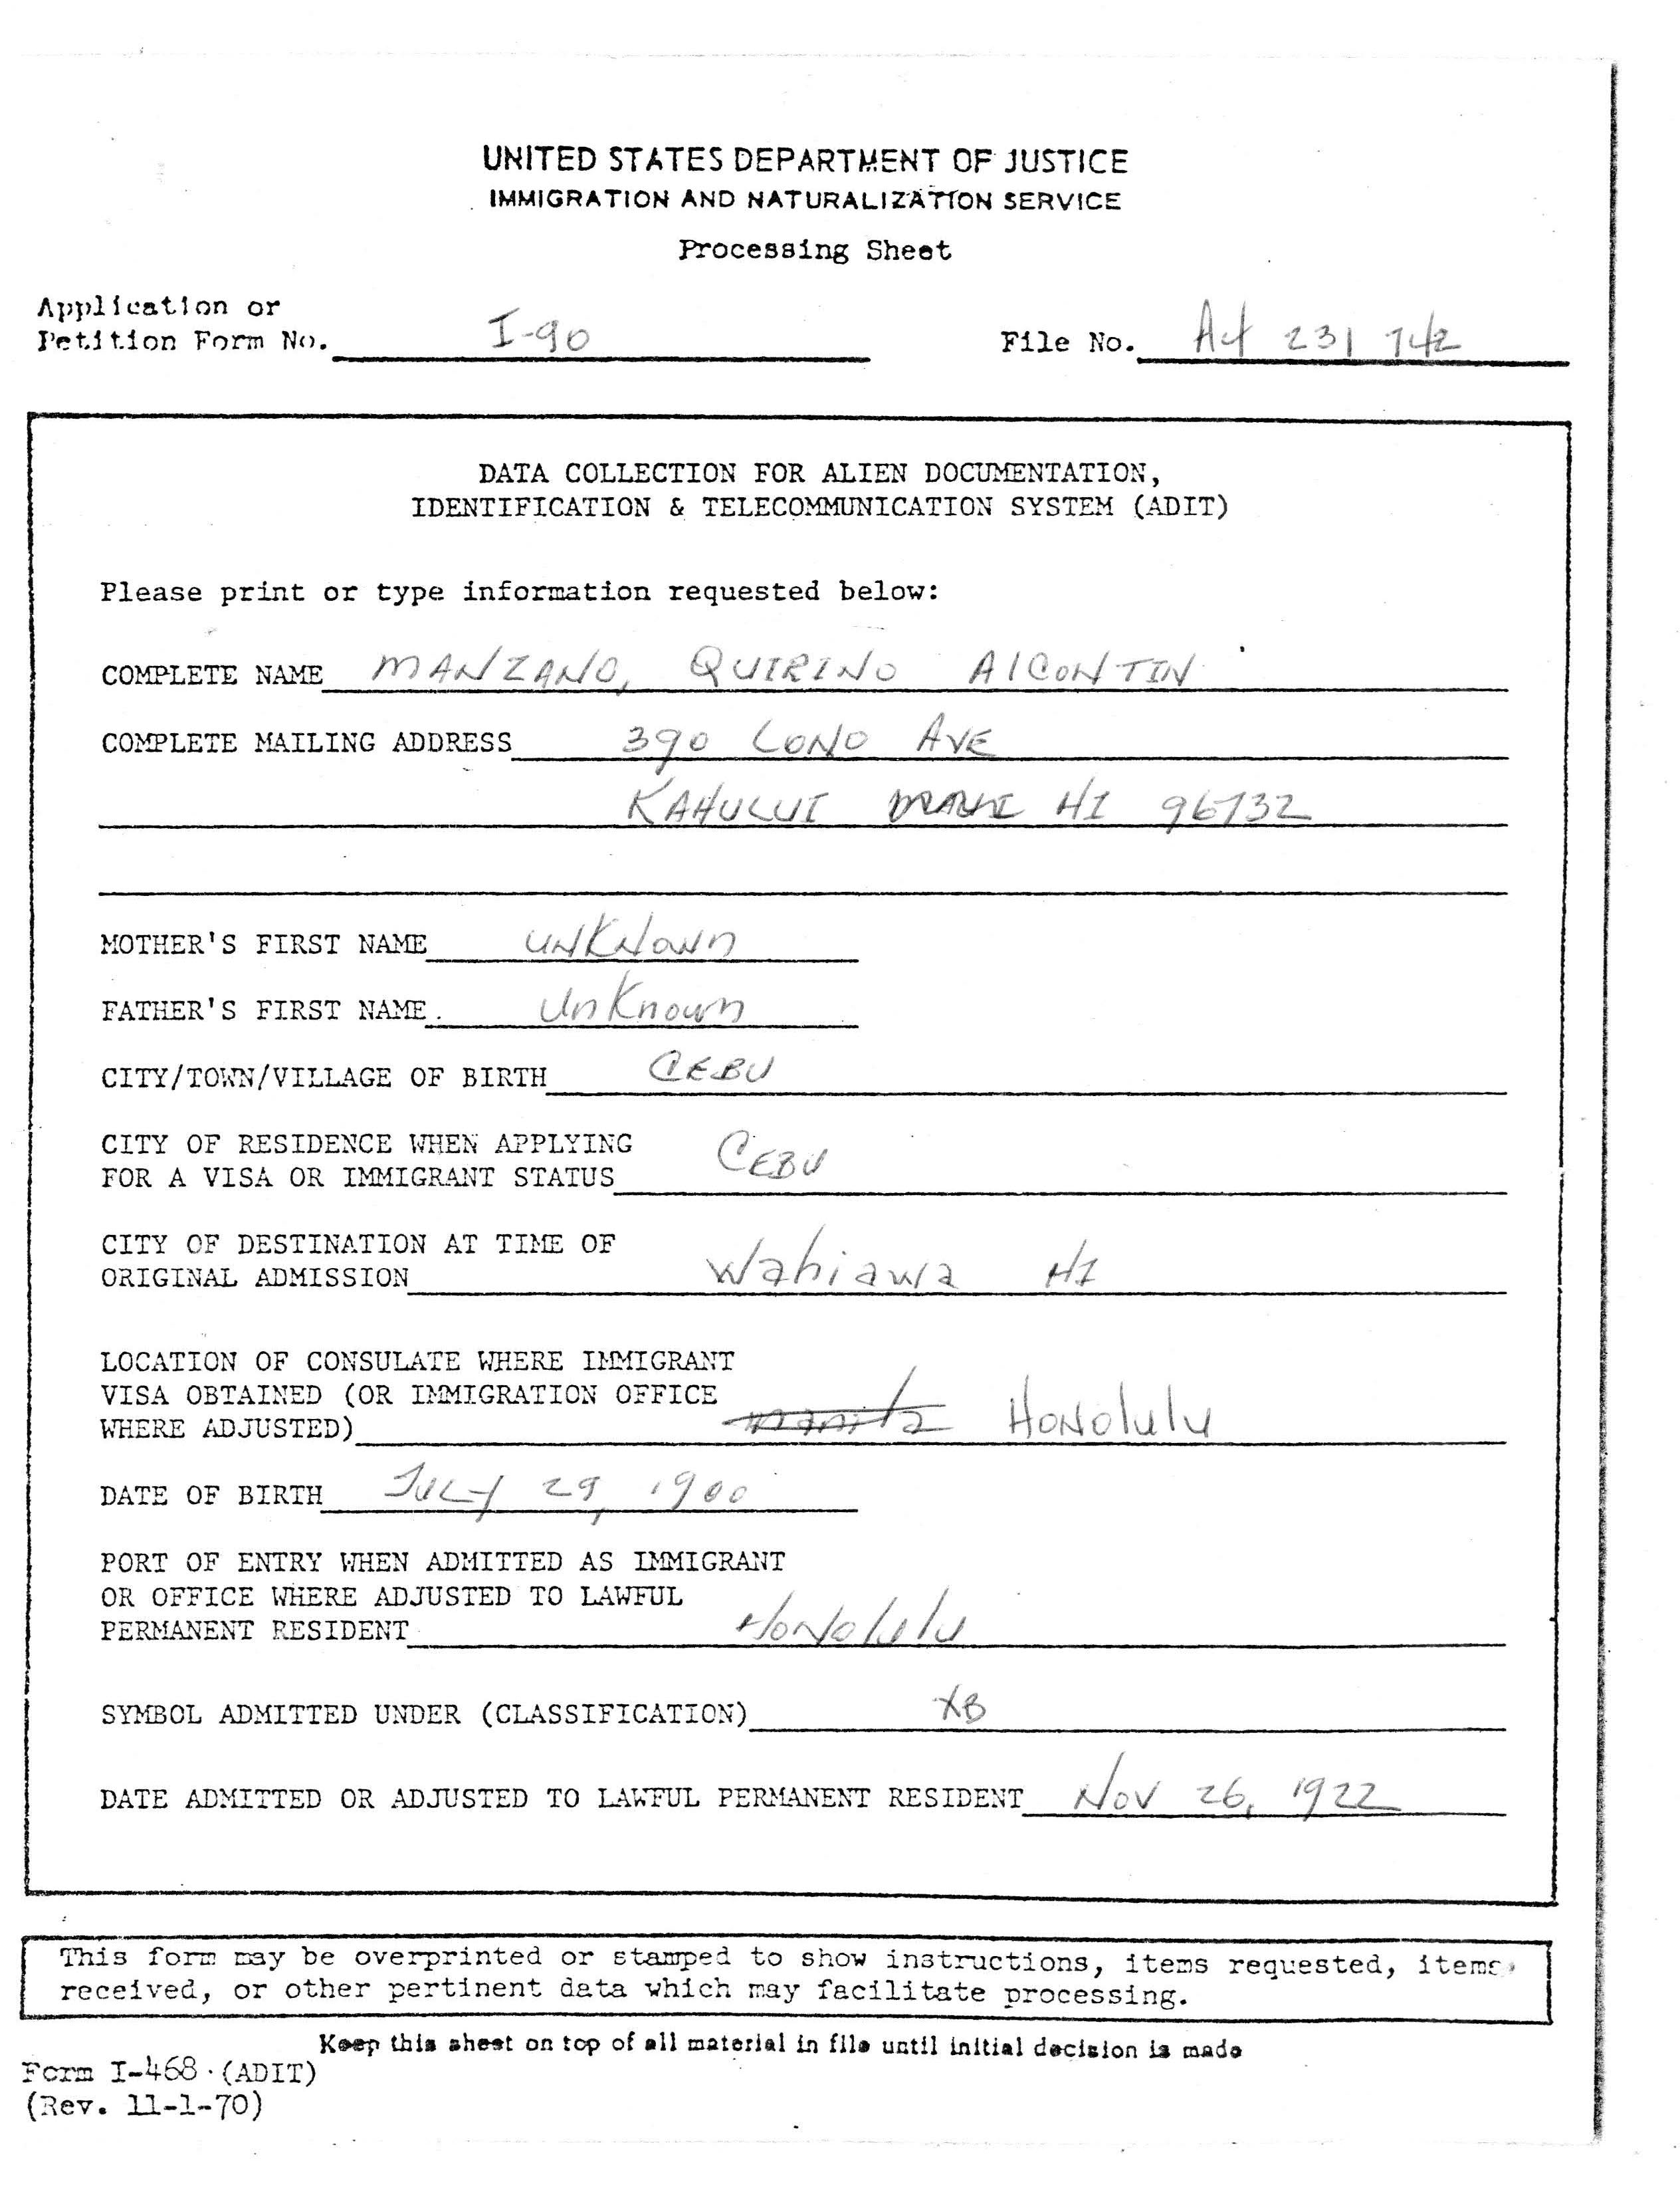 UNITED STATES DEPARTMENT OF JUSTICE
IMMIGRATION AND NATURALIZATION SERVICE
Processing Sheet
Application or
Petition Form No. I-90 File No. A4 231 742
DATA COLLECTION FOR ALIEN DOCUMENTATION,
IDENTIFICATION & TELECOMMUNICATION SYSTEM (ADIT)
Please print or type information requested below:
COMPLETE NAME MANZANO, QUIRINO AlCONTIN
COMPLETE MAILING ADDRESS 390 LONO AVE
KAHULUI HI 96732
MOTHER'S FIRST NAME UNKNOWN
FATHER'S FIRST NAME. UnKnown
CITY/TOWN/VILLAGE OF BIRTH CEBU
CITY OF RESIDENCE WHEN APPLYING
FOR A VISA OR IMMIGRANT STATUS CEBU
CITY OF DESTINATION AT TIME OF
ORIGINAL ADMISSION Wahiawa HI
LOCATION OF CONSULATE WHERE IMMIGRANT
VISA OBTAINED (OR IMMIGRATION OFFICE
WHERE ADJUSTED) manila HONOlulu
DATE OF BIRTH JULY 29, 1900
PORT OF ENTRY WHEN ADMITTED AS IMMIGRANT
OR OFFICE WHERE ADJUSTED TO LAWFUL
PERMANENT RESIDENT HONOlulu
SYMBOL ADMITTED UNDER (CLASSIFICATION) XB
DATE ADMITTED OR ADJUSTED TO LAWFUL PERMANENT RESIDENT NOV 26, 1922
This form may be overprinted or stamped to show instructions, items requested, items
received, or other pertinent data which may facilitate processing.
Keep this sheet on top of all material in file until initial decision is made
Form I-468 (ADIT)
(Rev. 11-1-70)